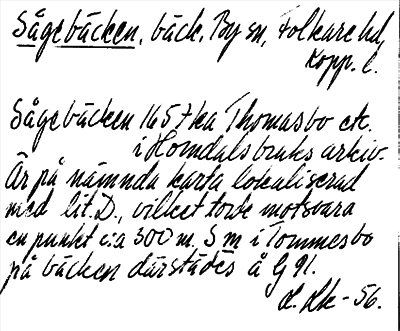 Sågebäcken, bäck, By sn, Folkare hd,
Kopp. l.
Sågebäcken 1657 ka Thomasbo etc.
i Horndals bruks arkiv.
Är på nämnda karta lokaliserad
med lit. D., vilket torde motsvara
en punkt c:a 300 m. S m i Tommesbo
på bäcken därstädes å G 91.
-56.